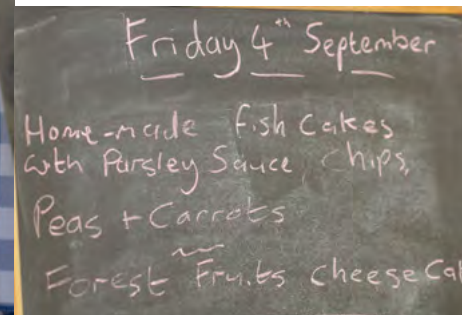 Friday 4th September
Home-made fish Cakes
with Parsley Sauce, Chips,
Peas + Carrots
Forest Fruits cheese Ca